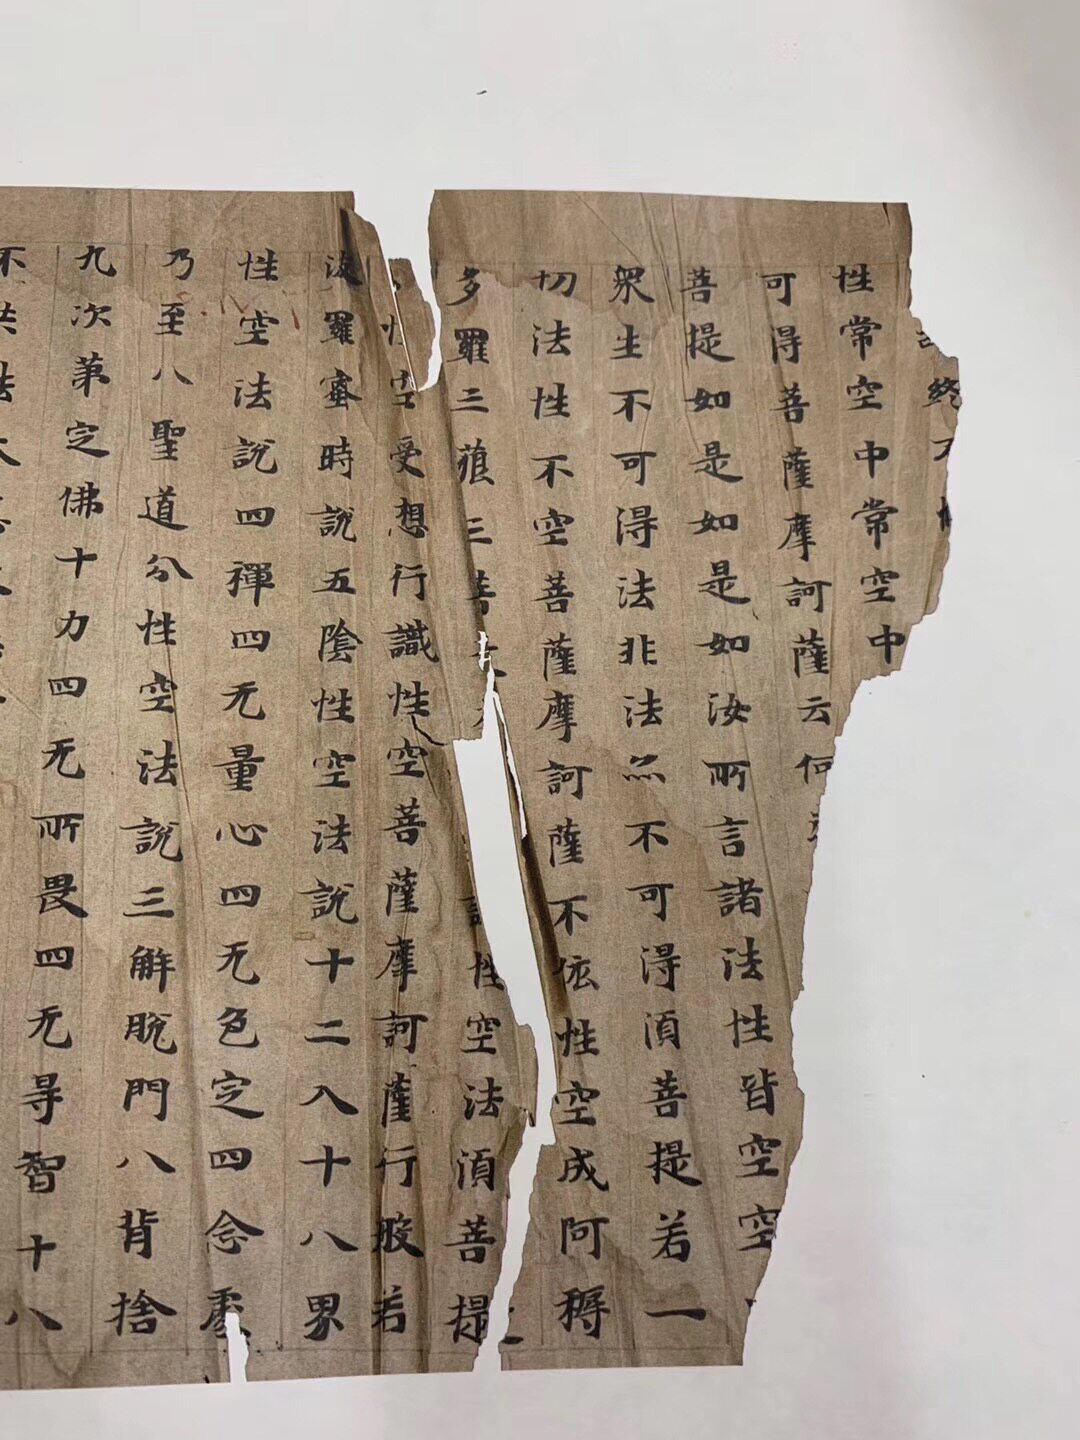 終不
性常空中常空中
可得菩薩摩訶薩云何
菩提如是如是如汝所言諸法性皆空空
衆生不可得法非法亦不可得湏菩提若一
切法性不空菩薩摩訶薩不依性空成阿耨
多羅三藐三菩 性空法湏菩提
性空受想行識性空菩薩摩訶薩行般若
波羅蜜時說五陰性空法說十二入十八界
性空法說四禪四无量心四无色定四念處
乃至八聖道分性空法說三解脫門八背捨
九次第定佛十力四无所畏四无导智十八
不共法大